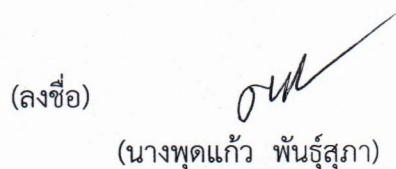 (ลงชื่อ)
(นางพุดแก้ว พันธุ์สุภา)